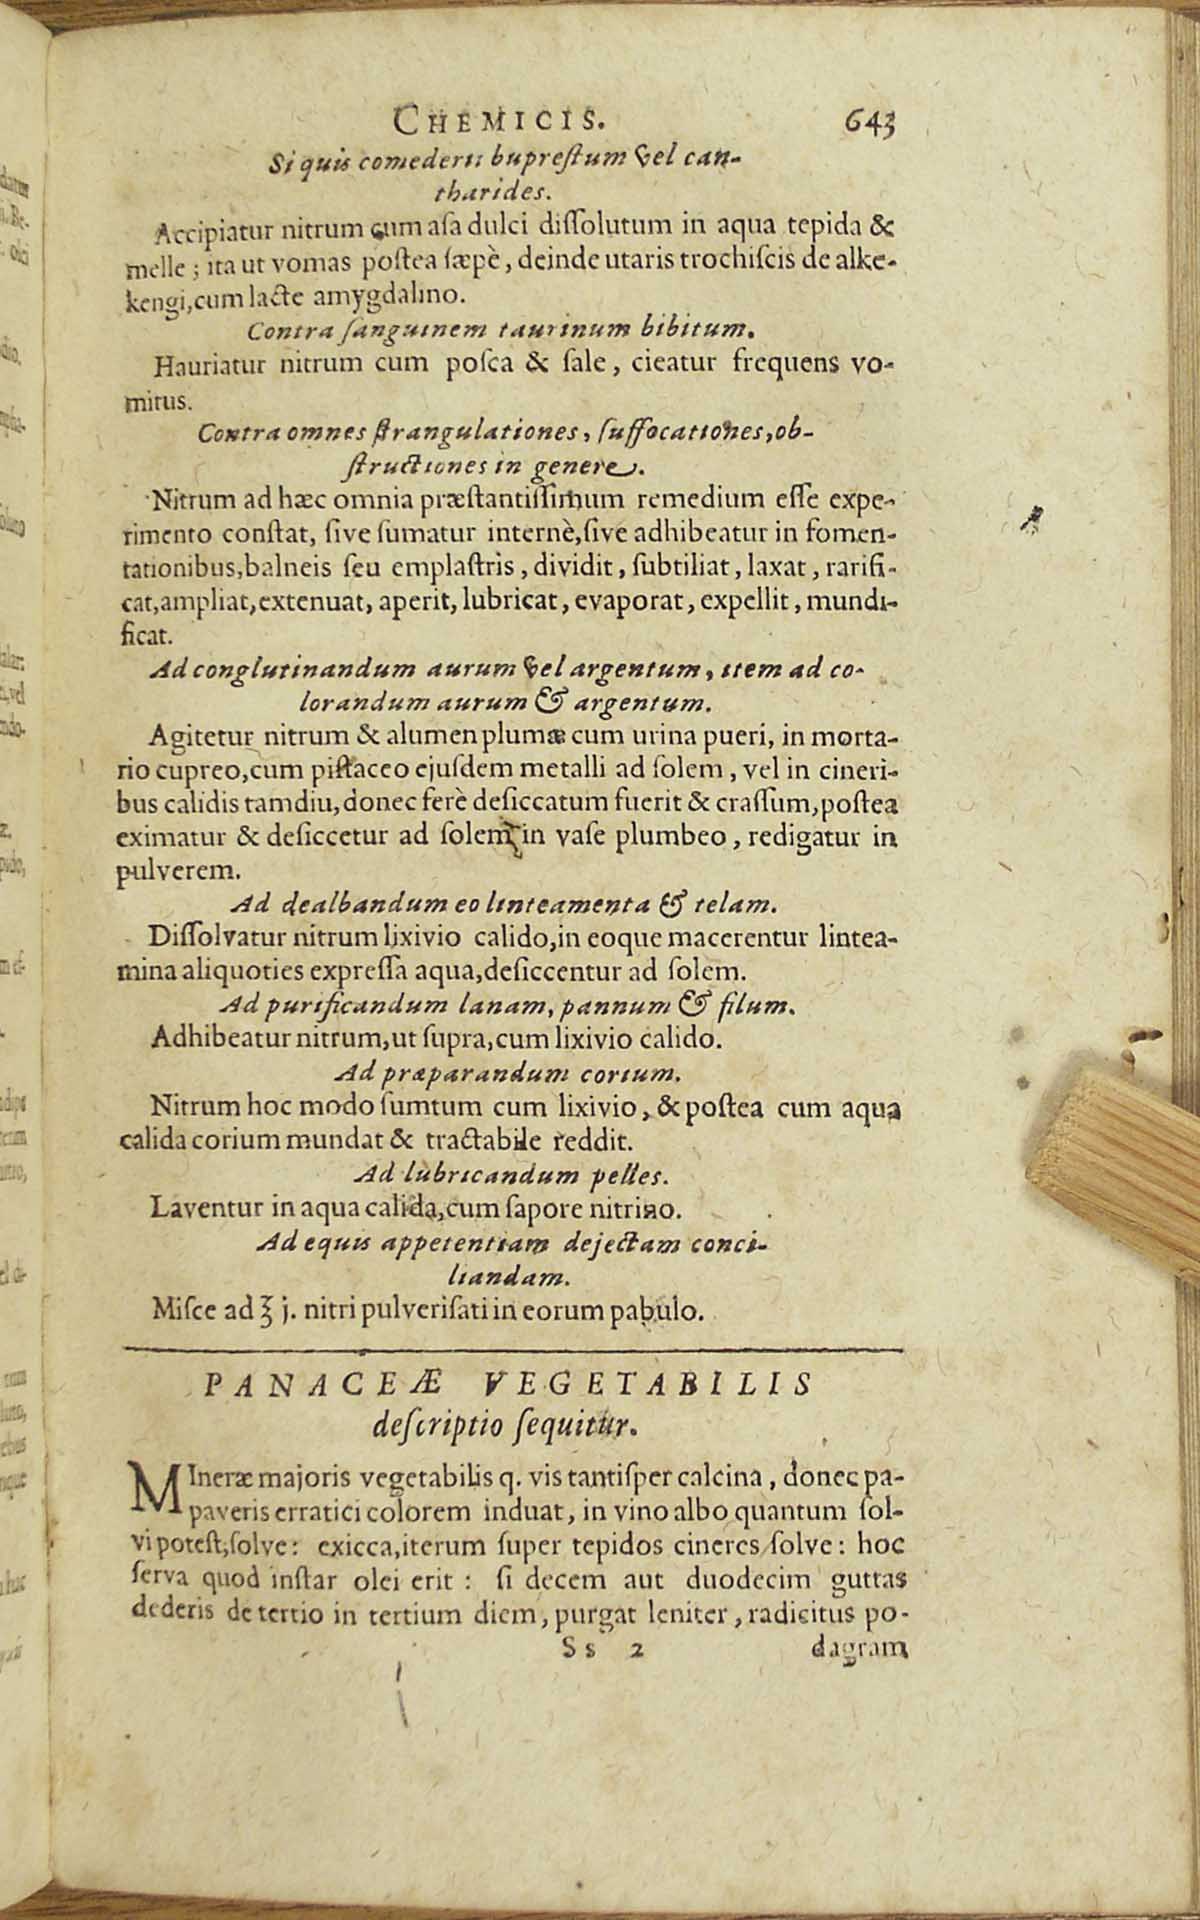 CHEMICIS. 643
Si quis comederit buprestum vel can-
tharides.
Accipiatur nitrum cum asa dulci dissolutum in aqua tepida &
melle; ita ut vomas postea sæpè, deinde utaris trochiscis de alke-
kengi, cum lacte amygdalino.
Contra sanguinem taurinum bibitum.
Hauriatur nitrum cum posca & sale, cieatur frequens vo-
mitus.
Contra omnes strangulationes, suffocationes, ob-
structiones in genere.
Nitrum ad hæc omnia præstantissimum remedium esse expe-
rimento constat, sive sumatur internè, sive adhibeatur in fomen-
tationibus, balneis seu emplastris, dividit, subtiliat, laxat, rarifi-
cat, ampliat, extenuat, aperit, lubricat, evaporat, expellit, mundi-
ficat.
Ad conglutinandum aurum vel argentum, item ad co-
lorandum aurum & argentum.
Agitetur nitrum & alumen plumæ cum urina pueri, in morta-
rio cupreo, cum pistaceo ejusdem metalli ad solem, vel in cineri-
bus calidis tamdiu, donec ferè desiccatum fuerit & crassum, postea
eximatur & desiccetur ad solem in vase plumbeo, redigatur in
pulverem.
Ad dealbandum eo linteamenta & telam.
Dissolvatur nitrum lixivio calido, in eoque macerentur lintea-
mina aliquoties expressa aqua, desiccentur ad solem.
Ad purificandum lanam, pannum & filum.
Adhibeatur nitrum, ut supra, cum lixivio calido.
Ad præparandum corium.
Nitrum hoc modo sumtum cum lixivio, & postea cum aqua
calida corium mundat & tractabile reddit.
Ad lubricandum pelles.
Laventur in aqua calida, cum sapore nitrino.
Ad equis appetentiam dejectam conci-
liandam.
Misce ad ℥ j. nitri pulverisati in eorum pabulo.
PANACEÆ VEGETABILIS
descriptio sequitur.
MIneræ majoris vegetabilis q. vis tantisper calcina, donec pa-
paveris erratici colorem induat, in vino albo quantum sol-
vi potest, solve: exicca, iterum super tepidos cineres solve: hoc
serva quod instar olei erit: si decem aut duodecim guttas
dederis de tertio in tertium diem, purgat leniter, radicitus po-
Ss 2 dagram